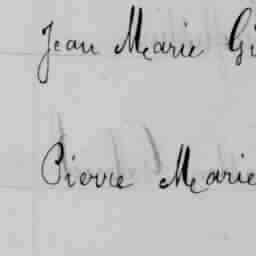 Jean Marie Gi
Pierre Marie